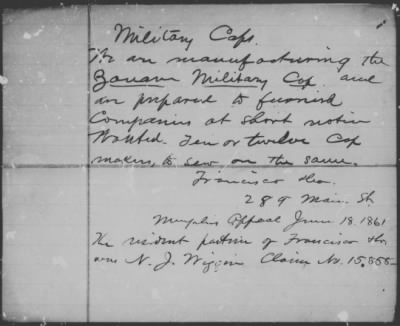 Military Caps.
We are manufacturing the
Zouave Military Cap and
are prepared to furnish
Companies at short notice
Wanted. Ten or twelve Cap
makers, to sew on the same.
Francisco &co.
289 Main. St.
Memphis Appeal June 18. 1861
The resident partner of Francisco &co
was N. J. Wiggin Claim No. 15,555-